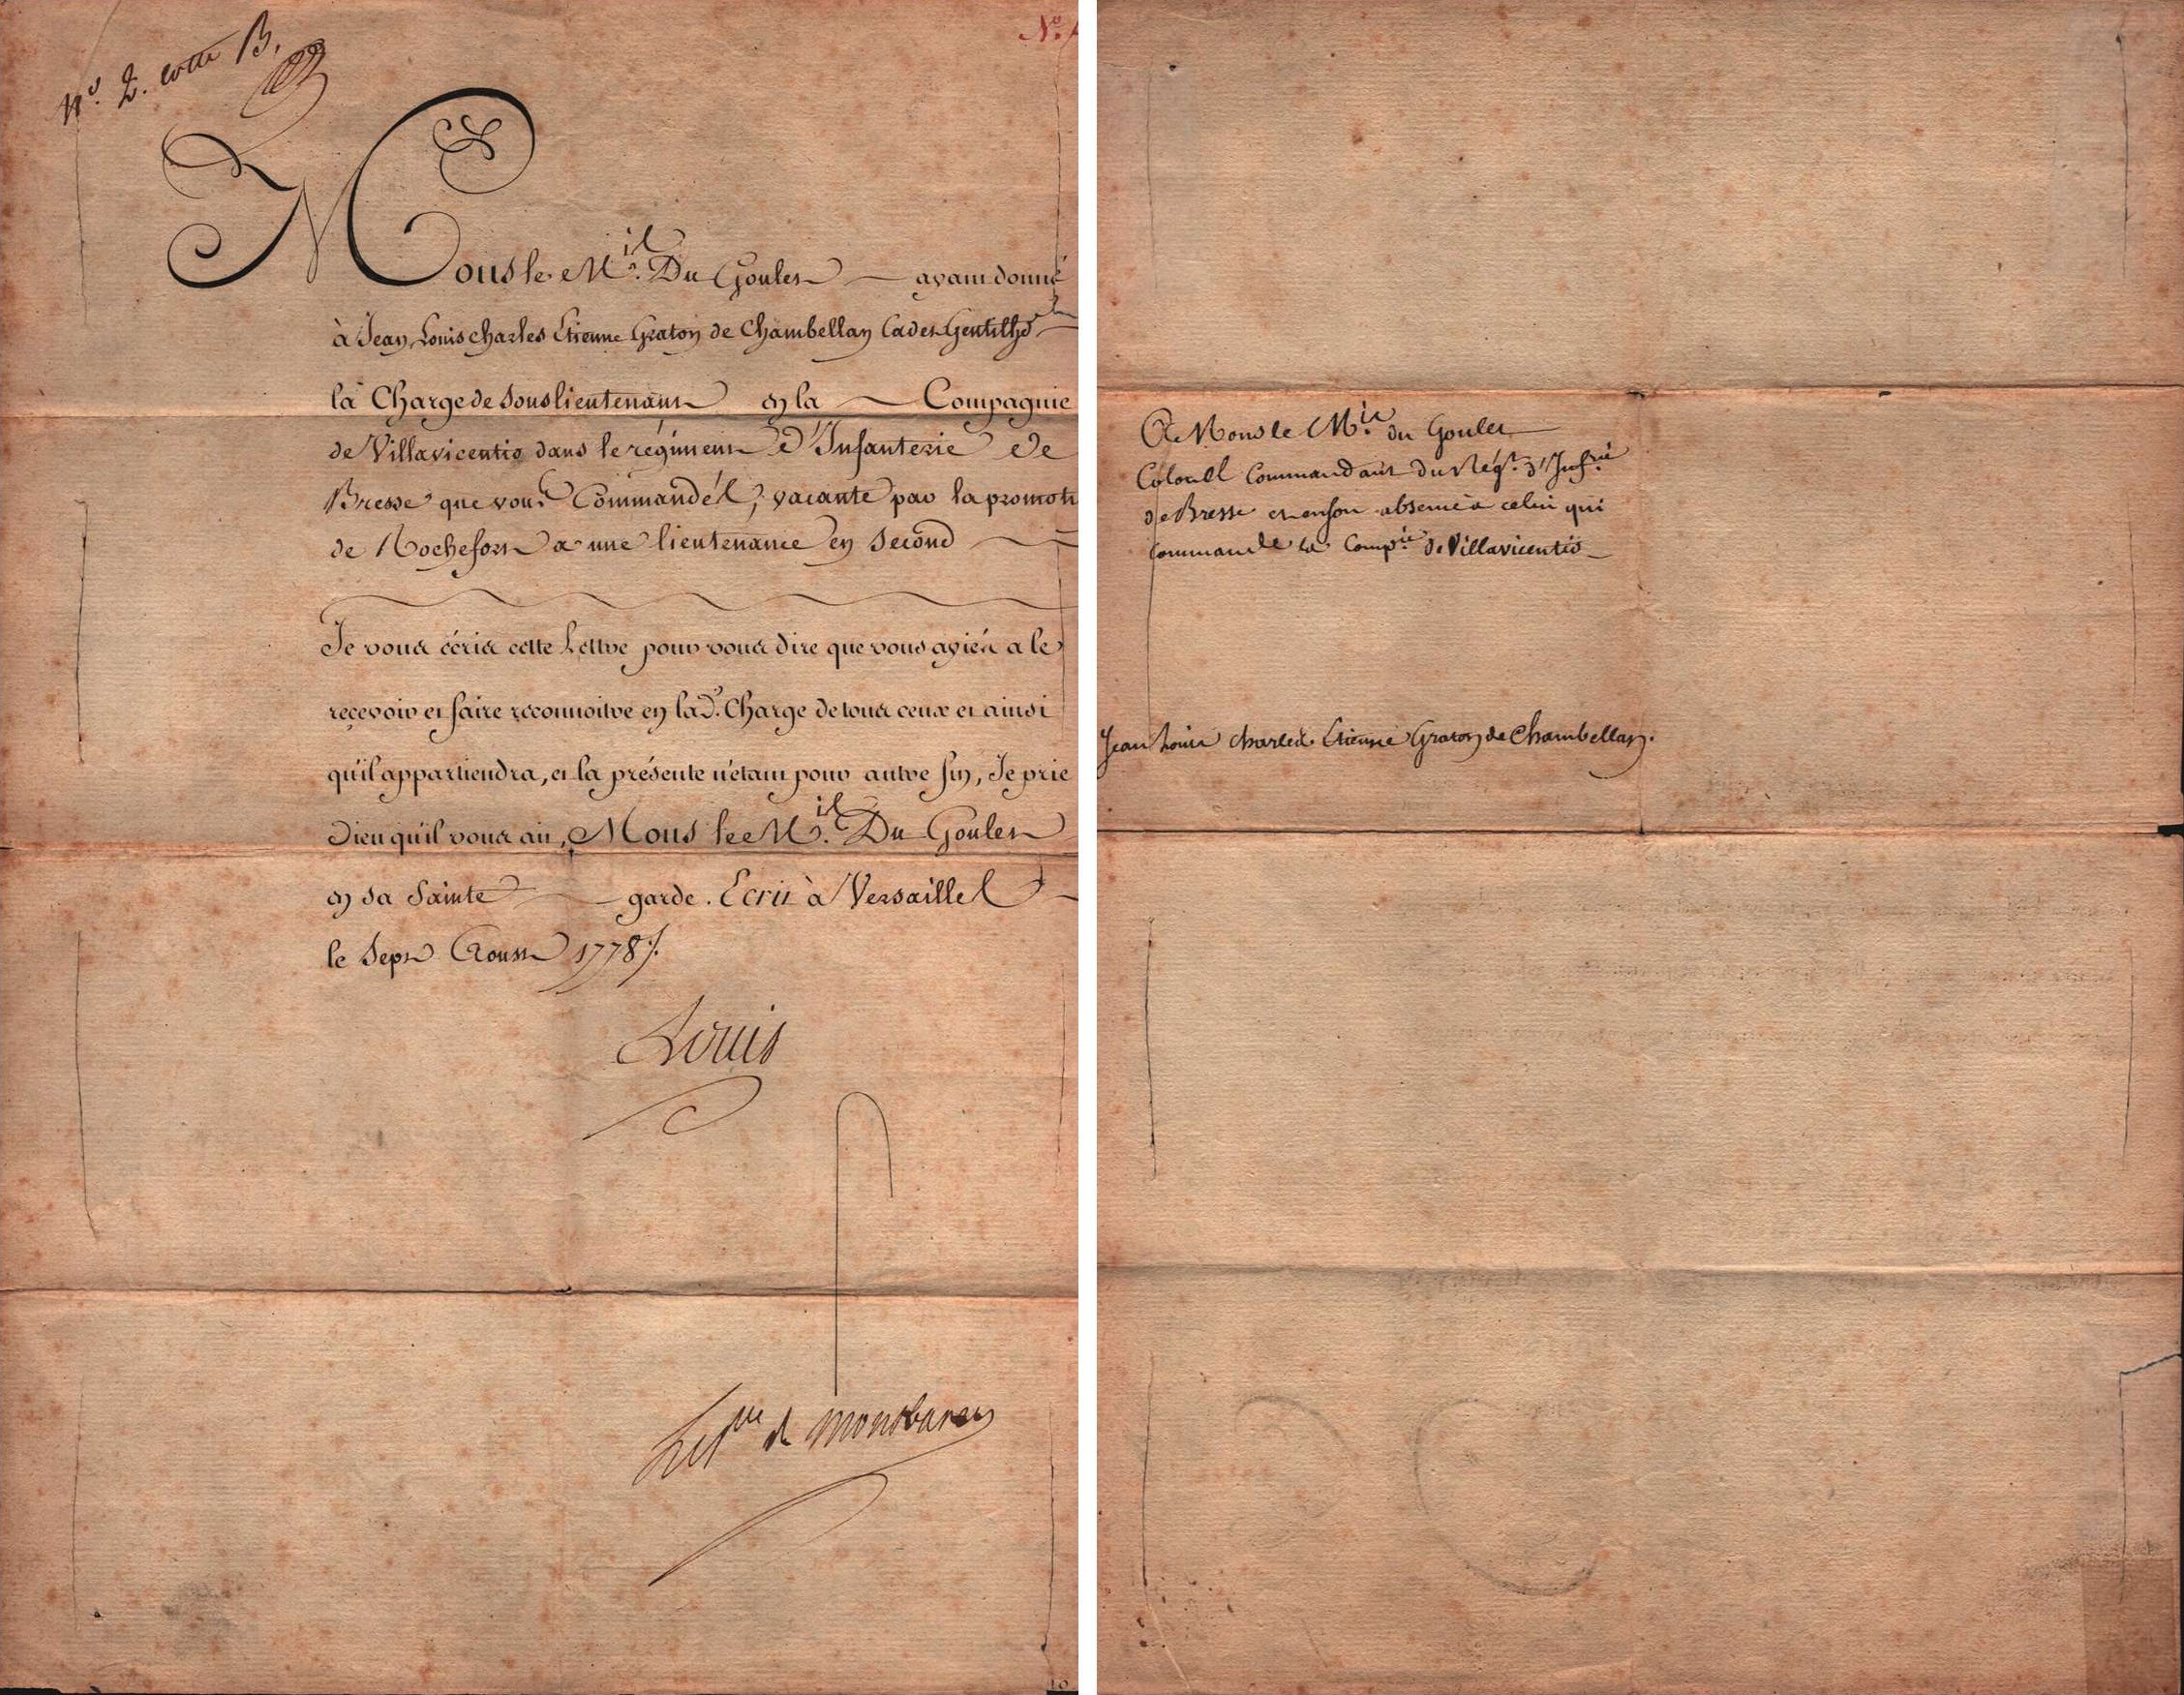 N.º 2. cotte B.
N.º
Mons le M.is Du Goulet ayant donné
à Jean Louis charles Etienne Graton de Chambellan Cadet Gentilho
la Charge de Souslieutenant en la Compagnie
de Villavicentio dans le regiment d'Infanterie de
Bresse que vous Commandés, vacante par la promoti
de Rochefort a une lieutenance en second
Je vous écris cette Lettre pour vous dire que vous ayiés a le
recevoir et faire reconnoitre en lad. Charge de tous ceux et ainsi
qu'il appartiendra, et la présente n'étant pour autre fin, Je prie
Dieu qu'il vous ait, Mons le M.is Du Goulet
en sa Sainte garde. Ecrit à Versailles
le Sept Aoust 1778.
Louis
Le p.ce de Montbarey
A Mons le M.is du Goulet
Colonel Commandant du Reg.t d'Inf.rie
de Bresse et en son absence à celui qui
commande la Comp.ie de Villavicentio
Jean Louis Charles Etienne Graton de Chambellan.
10